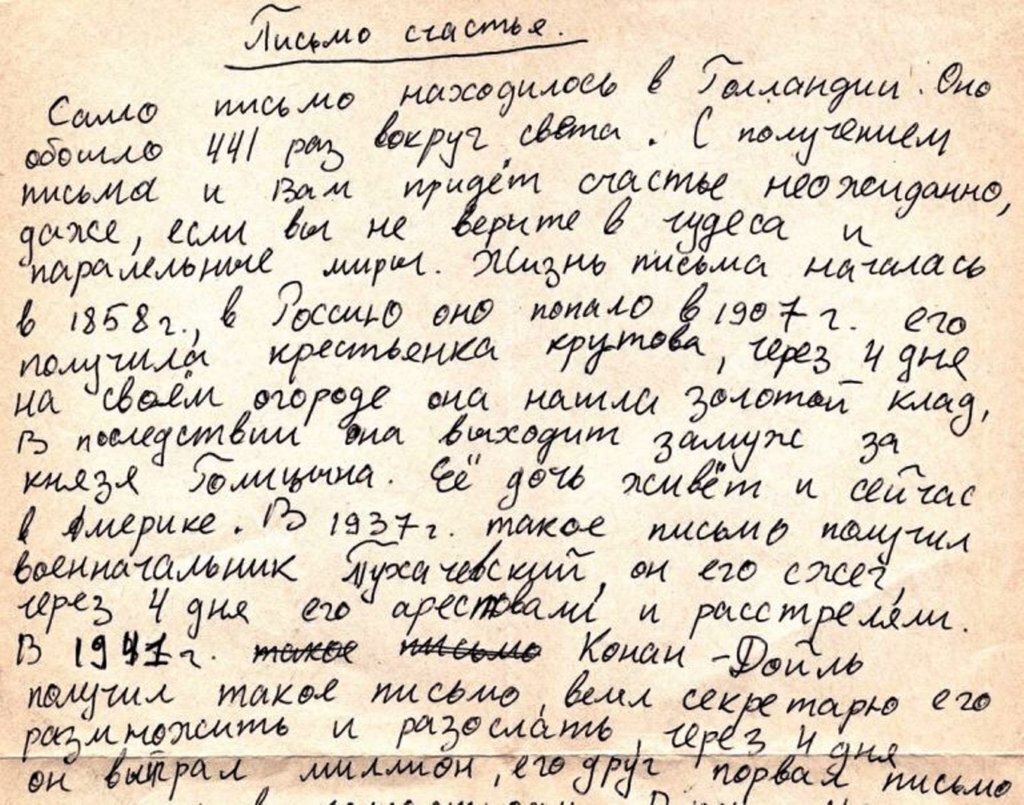 Письмо счастья.
Само письмо находилось в Голландии. Оно
обошло 441 раз вокруг света. С получением
письма и Вам придёт счастье неожиданно,
даже, если вы не верите в чудеса и
паралельные миры. Жизнь письма началась
в 1858 г., в Россию оно попало в 1907 г. его
получила крестьенка крутова, через 4 дня
на своём огороде она нашла золотой клад,
В последствии она выходит замуж за
князя Голицына. Её дочь живёт и сейчас
в Америке. В 1937 г. такое письмо получил
военначальник Тухачевский, он его сжег,
через 4 дня его арестовали и расстреляли.
В 1941 г. такое письмо Конан-Дойль
получил такое письмо, велил секретарю его
размножить и разослать, через 4 дня
он выйграл миллион, его друг порвал письмо